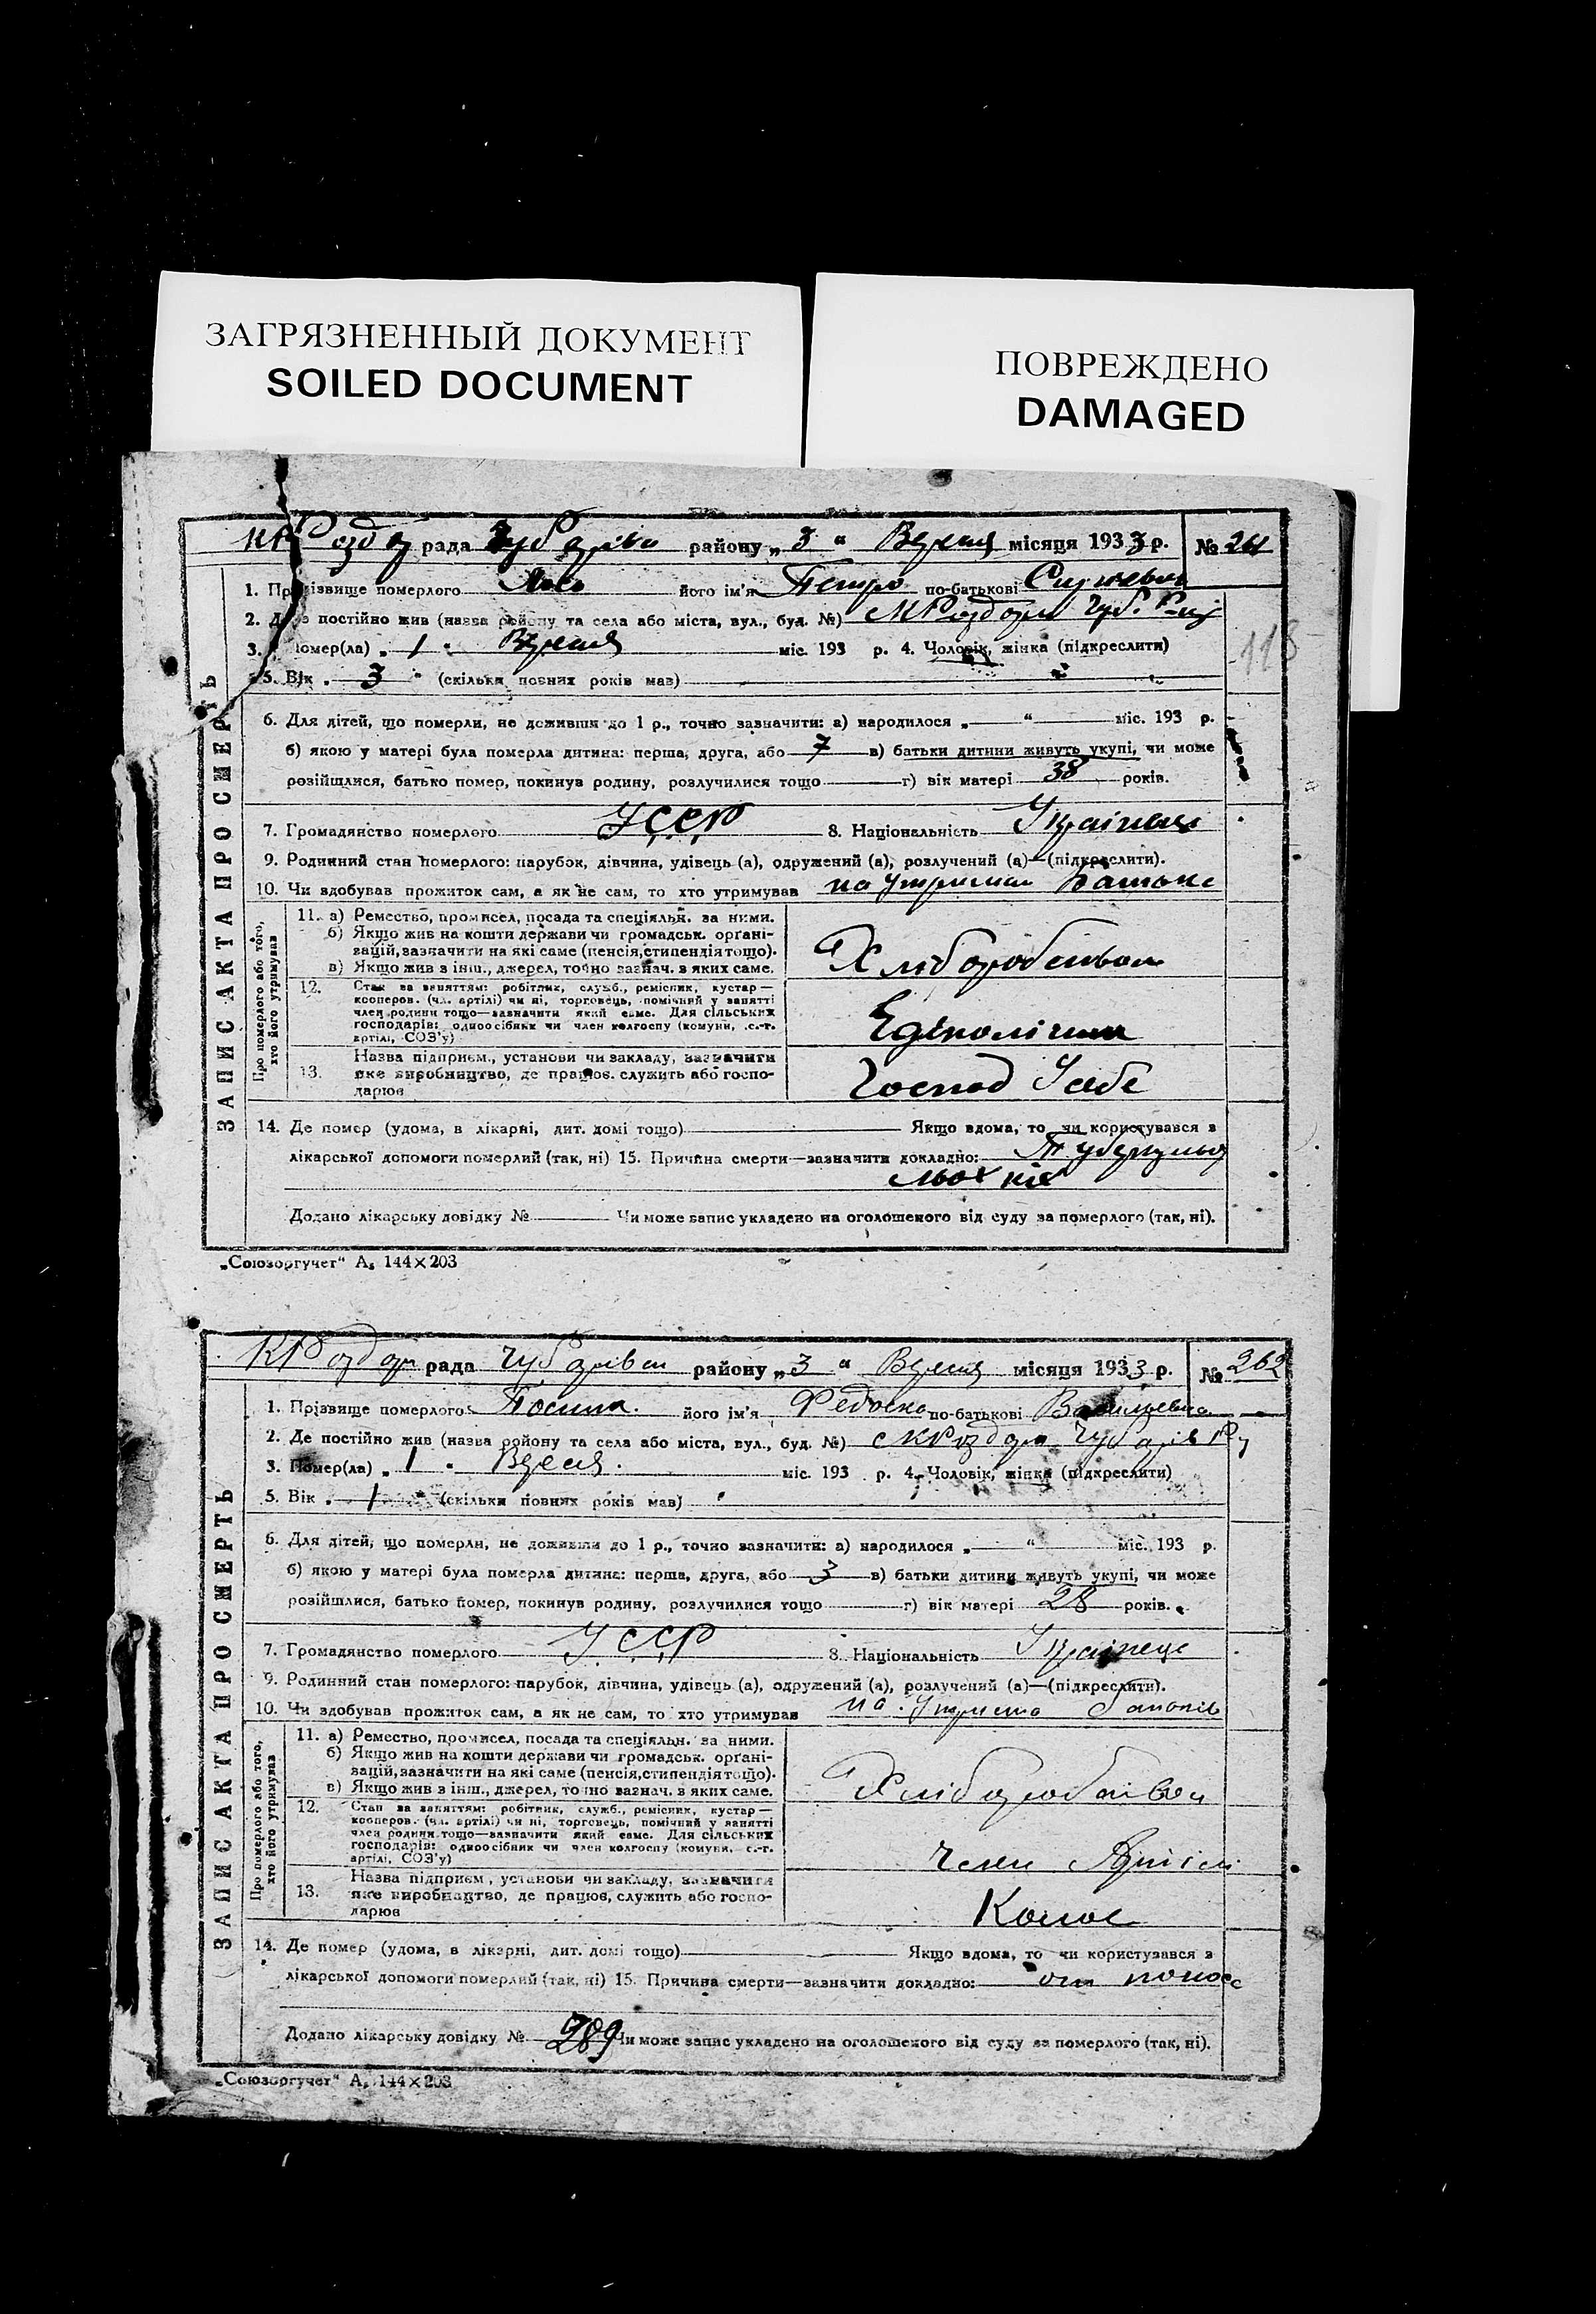 ЗАГРЯЗНЕННЫЙ ДОКУМЕНТ
SOILED DOCUMENT
ПОВРЕЖДЕНО
DAMAGED
рада району „ 3 “ місяця 1933 р. №
1. Прізвище померлого його ім'я Петро по-батькові
2. Де постійно жив (назва району та села або міста, вул., буд. №)
3. Помер(ла) „ 1 “ міс. 193 р. 4. Чоловік, жінка (підкреслити)
5. Вік „ 3 “ (скільки повних років мав)
118
6. Для дітей, що померли, не доживши до 1 р., точно зазначити: а) народилося „ “ міс. 193 р.
б) якою у матері була померла дитина: перша, друга, або 7 в) батьки дитини живуть укупі, чи може
розійшлися, батько помер, покинув родину, розлучилися тощо г) вік матері 38 років.
7. Громадянство померлого УССР 8. Національність Українець
9. Родинний стан померлого: парубок, дівчина, удівець (а), одружений (а), розлучений (а)—(підкреслити).
10. Чи здобував прожиток сам, а як не сам, то хто утримував на
ЗАПИС АКТА ПРО СМЕРТЬ
Про померлого або того, хто його утримував
11. а) Ремество, промисел, посада та спеціяльн. за ними.
б) Якщо жив на кошти держави чи громадськ. орґані-
зацій, зазначити на які саме (пенсія, стипендія тощо).
в) Якщо жив з інш., джерел, точно зазнач. з яких саме.
Хліборобством
12. Стан за заняттям: робітник, служб., ремісник, кустар—
кооперов. (чл. артілі) чи ні, торговець, помічний у занятті
член родини тощо—зазначити який саме. Для сільських
господарів: одноосібник чи член колгоспу (комуни, с.-г.
артілі, СОЗ'у)
13. Назва підприєм., установи чи закладу, зазначити
яке виробництво, де працюв. служить або госпо-
дарює
Господ У себе
14. Де помер (удома, в лікарні, дит. домі тощо) Якщо вдома, то чи користувався з
лікарської допомоги померлий (так, ні) 15. Причина смерти—зазначити докладно:
Додано лікарську довідку № Чи може запис укладено на оголошеного від суду за померлого (так, ні).
„Союзоргучет“ А₅ 144×203
рада району „ 3 “ місяця 1933 р. № 262
1. Прізвище померлого його ім'я по-батькові
2. Де постійно жив (назва району та села або міста, вул., буд. №)
3. Помер(ла) „ 1 “ міс. 193 р. 4. Чоловік, жінка (підкреслити)
5. Вік „ 1 “ (скільки повних років мав)
6. Для дітей, що померли, не доживши до 1 р., точно зазначити: а) народилося „ “ міс. 193 р.
б) якою у матері була померла дитина: перша, друга, або 3 в) батьки дитини живуть укупі, чи може
розійшлися, батько помер, покинув родину, розлучилися тощо г) вік матері 28 років.
7. Громадянство померлого УССР 8. Національність Українець
9. Родинний стан померлого: парубок, дівчина, удівець (а), одружений (а), розлучений (а)—(підкреслити).
10. Чи здобував прожиток сам, а як не сам, то хто утримував на
ЗАПИС АКТА ПРО СМЕРТЬ
Про померлого або того, хто його утримував
11. а) Ремество, промисел, посада та спеціяльн. за ними.
б) Якщо жив на кошти держави чи громадськ. орґані-
зацій, зазначити на які саме (пенсія, стипендія тощо).
в) Якщо жив з інш., джерел, точно зазнач. з яких саме.
Хліборобством
12. Стан за заняттям: робітник, служб., ремісник, кустар—
кооперов. (чл. артілі) чи ні, торговець, помічний у занятті
член родини тощо—зазначити який саме. Для сільських
господарів: одноосібник чи член колгоспу (комуни, с.-г.
артілі, СОЗ'у)
Член Артілі
13. Назва підприєм., установи чи закладу, зазначити
яке виробництво, де працює, служить або госпо-
дарює
Колос
14. Де помер (удома, в лікарні, дит. домі тощо) Якщо вдома, то чи користувався з
лікарської допомоги померлий (так, ні) 15. Причина смерти—зазначити докладно:
Додано лікарську довідку № 289 Чи може запис укладено на оголошеного від суду за померлого (так, ні).
„Союзоргучет“ А₅ 144×203